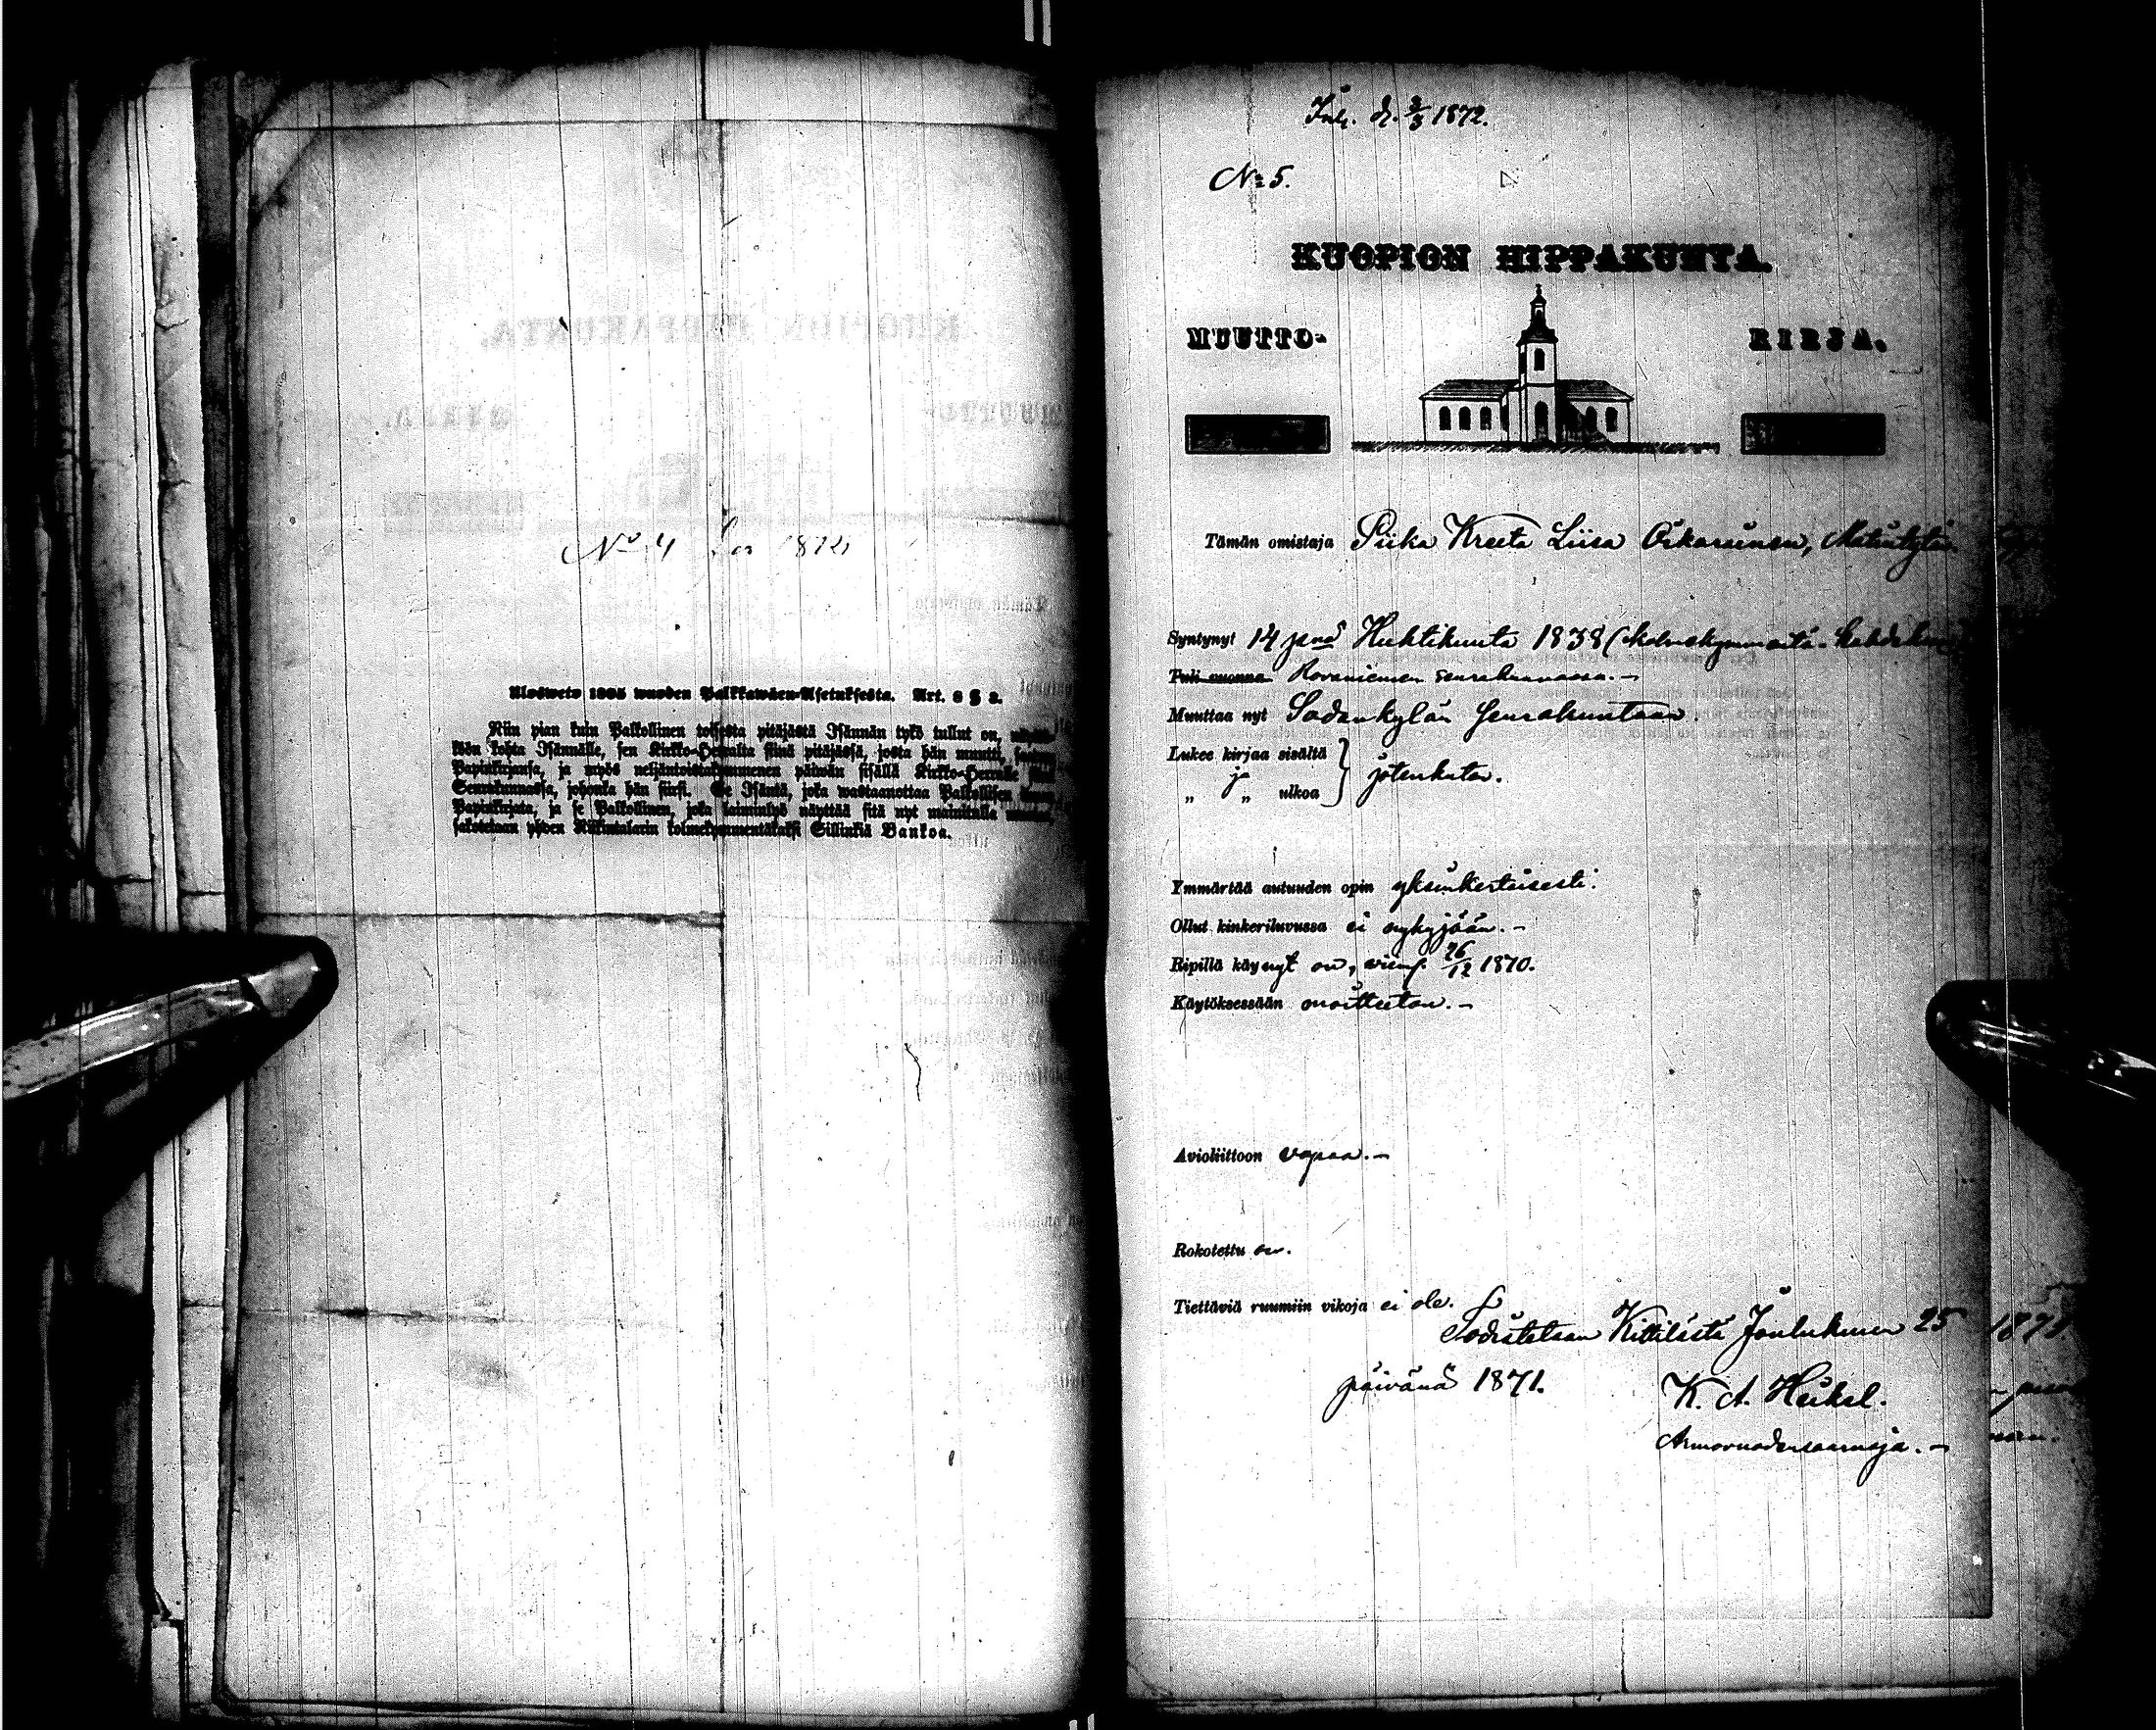 No 4 för 1872
Ulosweto 1805 wuoden Palkkawäen-Asetuksesta. Art. 8 § 2.
Niin pian kuin Palkollinen toisesta pitäjästä Isännän tykö tullut on,
kön kohta Isännälle, sen Kirkko-Herralta siinä pitäjässä, josta hän muutti,
Papinkirjansa, ja myös neljäntoistakymmenen päiwän sisällä Kirkko-Herralle
Seurakunnassa, johonka hän siirsi. Se Isäntä, joka wastaanottaa Palkollisen
Papinkirjata, ja se Palkollinen, joka laiminlyö näyttää sitä nyt mainitulla
sakotetaan yhden Riikintalarin kolmekymmentäkaksi Sillinkiä Bankoa.
Inl. d. 3/3 1872.
No 5.
KUOPION HIPPAKUNTA.
MUUTTO- KIRJA.
Tämän omistaja Piika Kreeta Liisa Oikarainen,
Syntynyt 14 pnä Huhtikuuta 1838 (kolmekymmentä-kahdeksan
Tuli vuonna Rovaniemen seurakunnassa.-
Muuttaa nyt Sodankylän Seurakuntaan.
Lukee kirjaa sisältä
ja } jotenkuten.
„ „ ulkoa
Ymmärtää autuuden opin yksinkertaisesti.
Ollut kinkeriluvussa ei nykyjään.-
Ripillä käynyt on, viim. 26/12 1870.
Käytöksessään moitteeton.-
Avioliittoon vapaa.-
Rokotettu on.
Tiettäviä ruumiin vikoja ei ole.
Todistetaan Kittilästä Joulukuun 25
päivänä 1871.
K. A. Heikel.
Armovuodensaarnaja.-